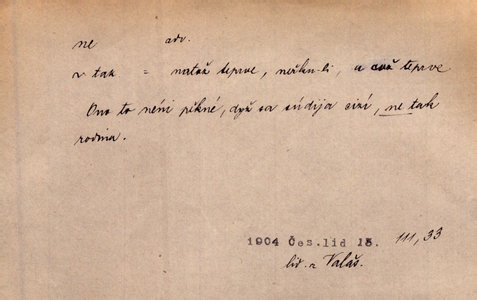 ne adv.
~ tak = natož teprve, neřku-li, a což teprve
Ono to néni pěkné, dyž sa súdija cizí, ne tak
rodina.
1904 Čes.lid 13. 111, 33
lid. z Valaš.